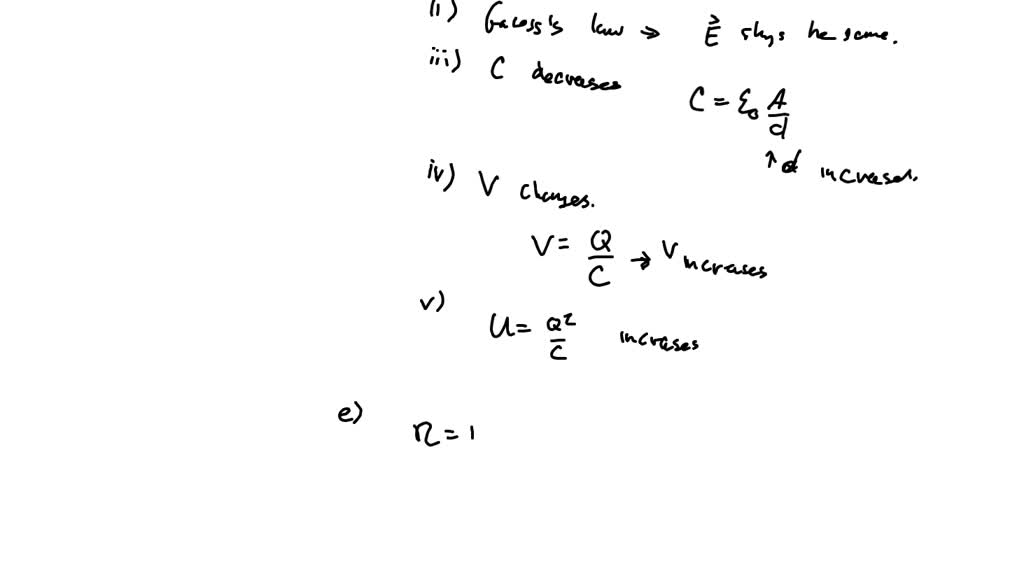 ii) Gauss's law → E⃗ stays the same.
iii) C decreases
C = ε₀ A/d
↑ d increased.
iv) V changes.
V = Q/C → V increases
v)
U = Q²/C increases
e)
n = 1